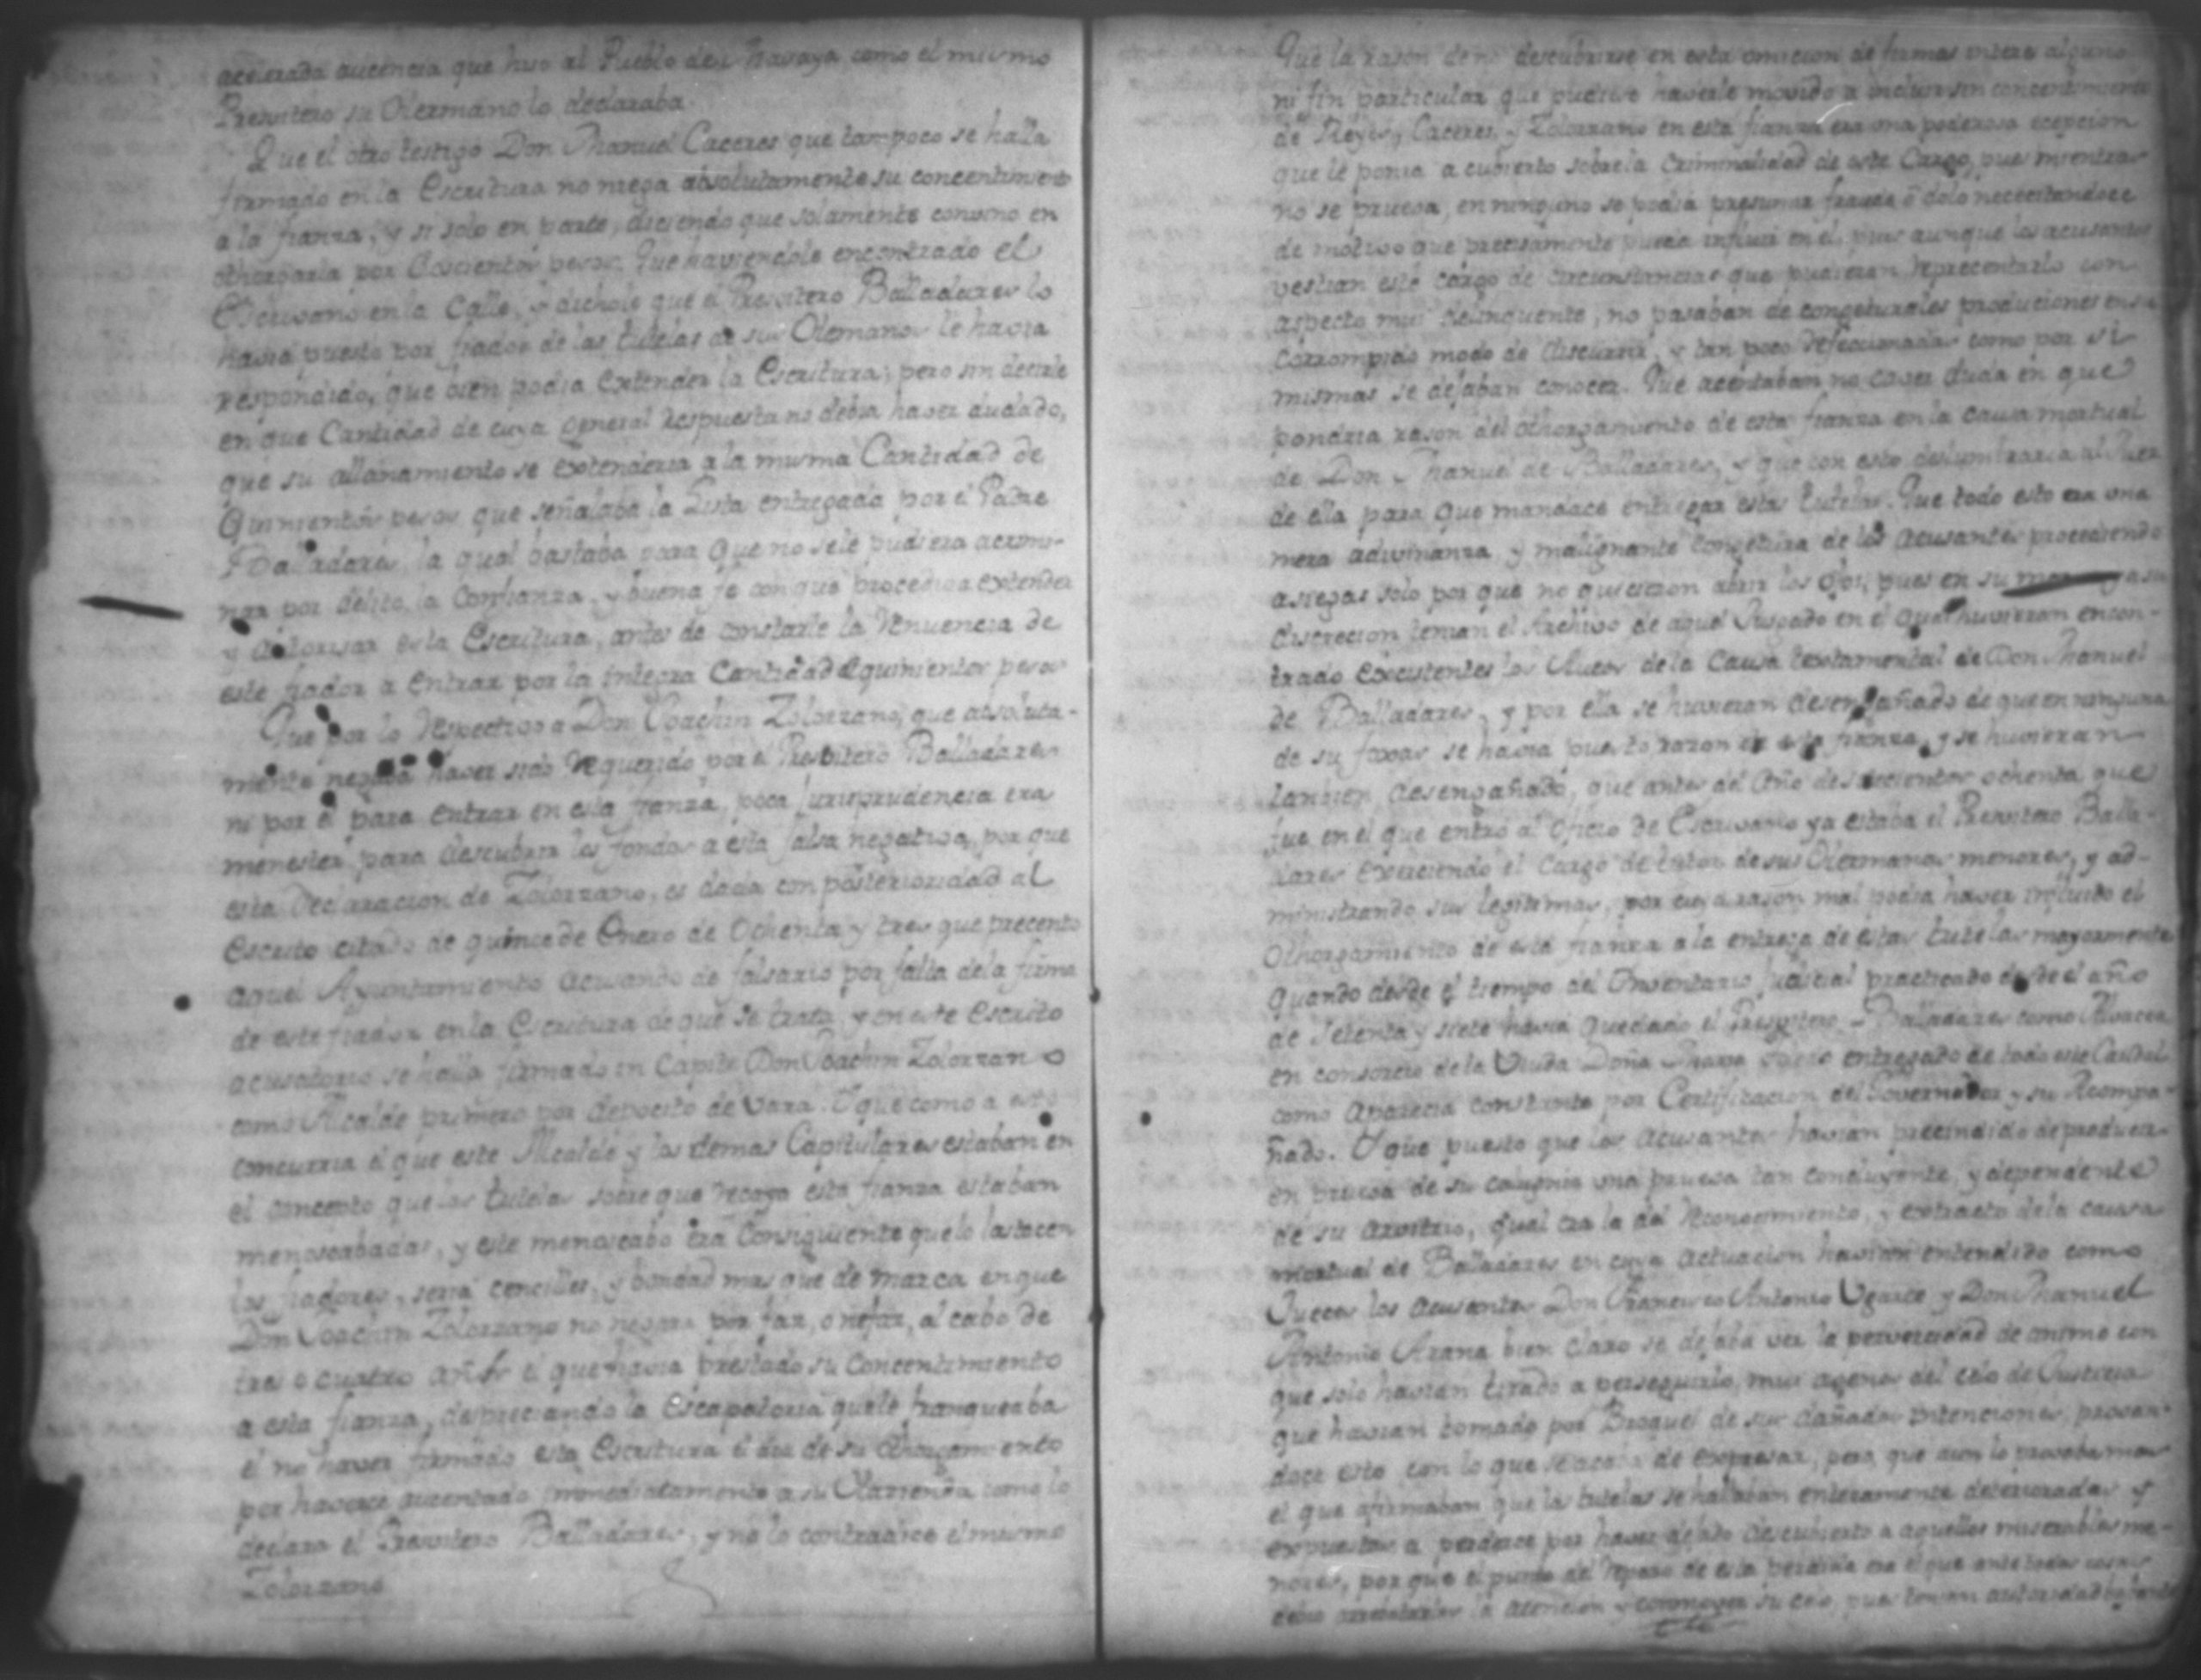 acelerada aucencia que hiso al Pueblo de Masaya como el mismo
Presvitero su Hermano lo declaraba.
Que el otro testigo Don Manuel Caceres que tampoco se halla
firmado en la Escritura no niega absolutamente su concentimiento
a la fianza, y si solo en parte, diciendo que solamente convino en
othorgarla por doscientos pesos. Que haviendole encontrado el
Escrivano en la Calle, y dichole que el Presvitero Balladares lo
havia puesto por fiador de las tutelas de sus Hermanos le havia
respondido, que bien podia extender la Escritura; pero sin decirle
en que Cantidad de cuya general respuesta no debia haver dudado,
que su allanamiento se extenderia a la misma Cantidad de
Quinientos pesos que señalaba la Lista entregada por el Padre
Balladares, la qual bastaba para que no se le pudiera acrimi-
nar por delito la Confianza, y buena fe con que procedio a extender
y autorisar esta Escritura, antes de constarle la renuencia de
este fiador a entrar por la integra Cantidad de quinientos pesos
Que por lo respectivo a Don Joachin Zolorzano, que absoluta-
mente negaba haver sido requerido por el Presvitero Balladares
ni por el para entrar en esta fianza, poca Jurisprudencia era
menester para descubrir los fondos a esta falsa negativa, por que
esta Declaracion de Zolorzano, es dada con posterioridad al
Escrito citado de quince de Enero de Ochenta y tres que precento
aquel Ayuntamiento acusando de falsario por falta de la firma
de este fiador en la Escritura de que se trata, y en este Escrito
acusatorio se halla firmado in Capite Don Joachin Zolorzano
como Alcalde primero por deposito de Vara. Y que como a esto
concurria el que este Alcalde y los demas Capitulares estaban en
el concepto que las tutelas sobre que recaya esta fianza estaban
menoscabadas, y este menoscabo era consiguiente que lo lastacen
los fiadores, seria cencilles, y bondad mas que de marca en que
Don Joachin Zolorzano no negara por fas, o nefas, al cabo de
tres o cuatro años el que havia prestado su Concentimiento
a esta fianza, despreciando la Escapatoria que le franqueaba
el no haver firmado esta Escritura el dia de su othorgamiento
por haverce aucentado immediatamente a su Hacienda como lo
declara el Presvitero Balladares, y no lo contradice el mismo
Zolorzano
Que la rason de no descubrirse en esta omicion de firmas interes alguno
ni fin particular que pudiese haverle movido a incluir sin concentimiento
de Reyes, Caceres, y Zolorzano en esta fianza era una poderosa ecepcion
que le ponia a cubierto sobre la Criminalidad de este Cargo, pues mientras
no se prueba, en ninguno se podia presumir fraude o dolo necesitandose
de motivo que precisamente pueda influir en el, pues aunque los acusantes
vestian este cargo de circunstancias que pudieran reprecentarlo con
aspecto mui delinquente, no pasaban de congeturales produciones en su
corrompido modo de discurrir, y tan poco reflecionadas como por si
mismas se dejaban conocer. Que acentaban no caver duda en que
pondria rason del othorgamiento de esta fianza en la causa mortual
de Don Manuel de Balladares, y que con esto deslumbraria al Juez
de ella para que mandace entregar estas tutelas. Que todo esto era una
mera adivinanza, y malignante congetura de los acusantes procediendo
a ciegas solo por que no quicieron abrir los ojos, pues en su
discrecion tenian el Archivo de aquel Jusgado en el qual huvieran encon-
trado Existentes los Autos de la Causa testamental de Don Manuel
de Balladares, y por ella se huvieran desengañado de que en ninguna
de su foxas se havia puesto razon de esta fianza, y se huvieran
tambien desengañado, que antes del Año de setecientos ochenta que
fue en el que entro al Oficio de Escrivano ya estaba el Presvitero Balla-
dares Exerciendo el Cargo de tutor de sus Hermanos menores, y ad-
ministrando sus legitimas, por cuya rason mal podia haver influido el
othorgamiento de esta fianza a la entrega de estas tutelas mayormente
quando desde el tiempo del Inventario Judicial practicado desde el año
de Setenta y siete havia quedado el Presvitero Balladares como Alvacea
en consorcio de la Viuda Doña Maria entregado de todo este Caudal
como aparecia constante por Certificacion del Governador y su Acompa-
ñado. Y que puesto que los acusantes havian precindido de producir
en prueba de su calugnia una prueba tan concluyente, y dependente
de su arvitrio, qual era la del reconocimiento, y extracto de la causa
mortual de Balladares en cuya actuacion havian entendido como
Jueces los acusantes Don Francisco Antonio Ugarte y Don Manuel
Antonio Arana bien claro se dejaba ver la perversidad de animo con
que solo havian tirado a perseguirlo, mui agenos del celo de Justicia
que havian tomado por Broquel de sus dañadas intenciones, provan-
doce esto con lo que se acaba de expresar, pero que aun lo provaba mas
el que afirmaban que las tutelas se hallaban enteramente deterioradas y
expuestas a perderce por haver dejado descubierto a aquellos miserables me-
nores, por que el punto del reparo de esta perdida era el que ante todas cosas
debia arrebatarles la atencion y conmover su celo, pues tenian autoridad bastante